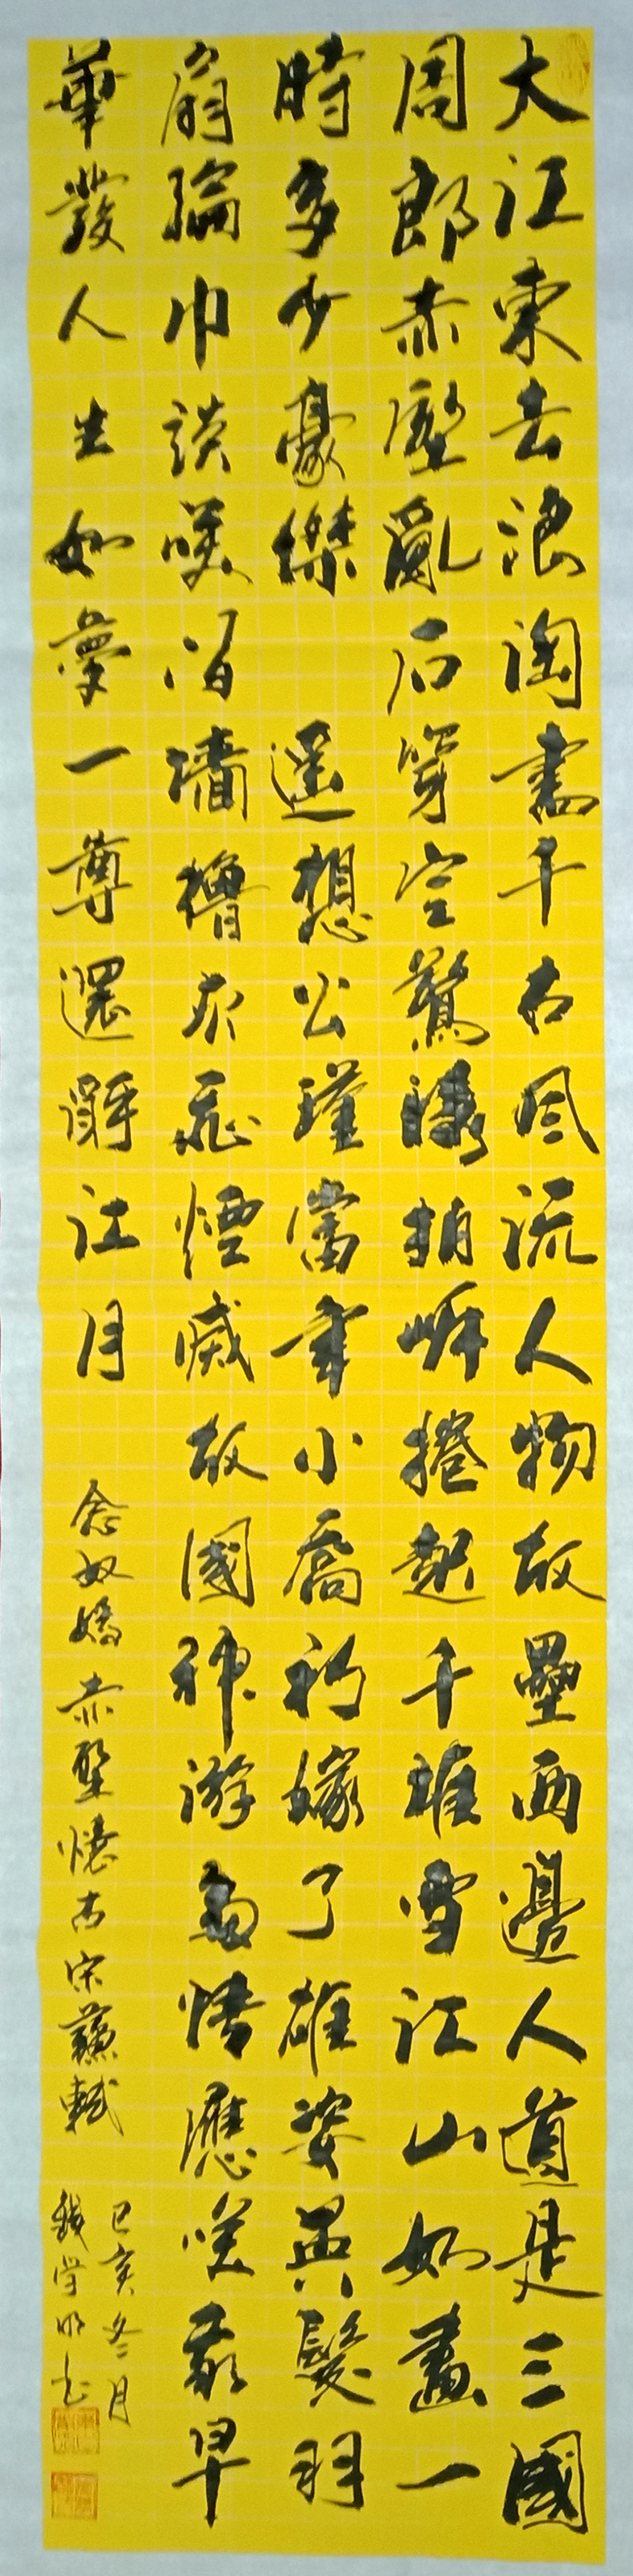 大江東去浪淘盡千古風流人物故壘西邊人道是三國
周郎赤壁亂石穿空驚濤拍岸捲起千堆雪江山如畫一
時多少豪傑 遥想公瑾當年小喬初嫁了雄姿英髮羽
扇綸巾談笑間墻櫓灰飛煙滅故國神游多情應笑我早
華發人生如夢一尊還酹江月 念奴嬌 赤壁懷古宋蘇軾
己亥冬月
錢学明書